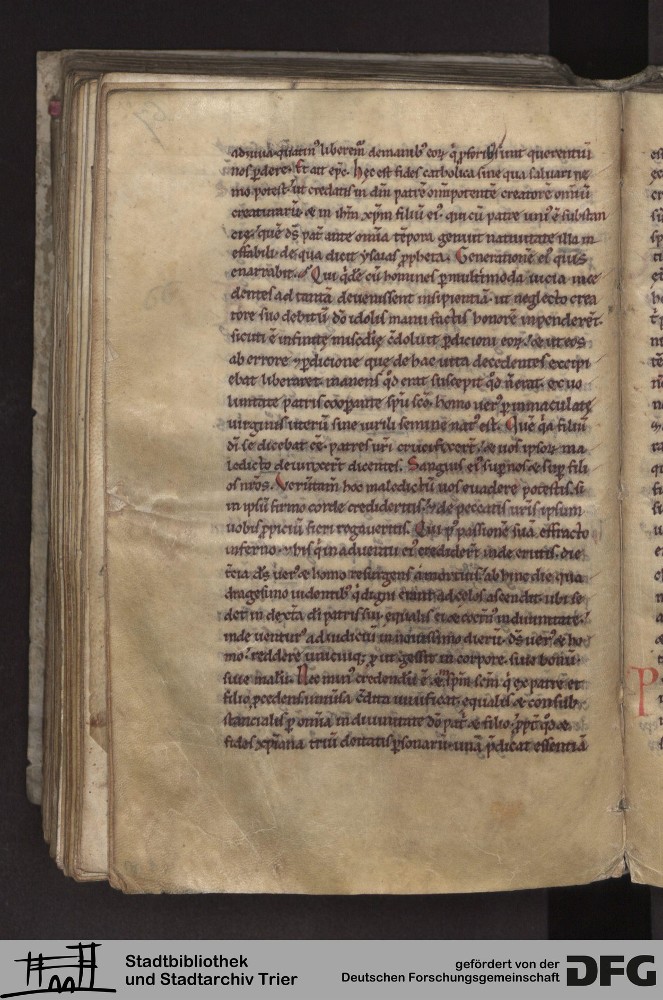 adiuua. quatin᷒ liberem᷒ de manib᷒ eoꝝ
nos ꝑdere. Et ait ep̄c. Hec est fides catholica sine qua saluari ne
mo potest. ut credatis in dm̄ patrē om̄ipotentē creatorē om̄iū
creaturarū. & in ihm̄ xp̄m filiū ei᷒. qui cū patre uni᷒ ē substan
cię. quē ds̄ pat̄ ante om̄ia tēpora genuit natiuitate illa in
effabili. de qua dicit ysaias ꝓpheta. Generationē ei᷒ quis
enarrabit. Qui q̇dē cū homines ꝑ multimoda uicia ince
dentes ad tantā deuenissent insipientiā. ut neglecto crea
tore suo debitū dō idolis manu factis honorē inpenderēt.
sicuti ē infinitę mis̄cdię c̄doluit ꝑdicioni eoꝝ. & ut eos
ab errore & ꝑdicione que de hac uita decedentes excipi
ebat liberaret. manens qd̄ erat suscepit qd̄ n̄ erat. ex uo
luntate patris cooꝑante sp̄u sc̄o. homo uer᷒ ꝑ inmaculatę
uirginis uterū sine uirili semine nat᷒ est. Quē q̄a filiū
dī se dicebat eē. patres ur̄i crucifixer̄t. & uos ipsoꝝ ma
ledicto deuinxer̄t dicentes. Sanguis ei᷒ suꝑ nos & suꝑ fili
os nr̄os. Verūtam̄ hoc maledictū uos euadere potestis. si
in ipsū firmo corde credideritis. & de peccatis uris ipsum
uobis ꝓpiciū fieri rogaueritis. Qui p᷒ passionē suā effracto
inferno. & his q̇ in aduentū ei᷒ credidert̄ inde erutis. die
t̄cia ds̄ uer᷒ & homo resurgens a mortuis. ab hinc die qua
dragesimo uidentib᷒ q̇ digni erant ad celos ascendit. ubi se
det in dext̄a dī patris sui. equalis ei & coetn᷒ in diuinitate.
inde uentur᷒ ad iudiciū in nouissimo dierū. ds̄ uer᷒ & ho
mo. reddere unicuiq; ꝓ ut gessit in corpore. siue bonū.
siue malū. Nec min᷒ credendū ē. & sp̄m sc̄m q̇ ex patre et
filio ꝓcedens uniu̇sa c̄dita uiuificat. equalē & consub
stancialē ꝑ om̄ia in diuinitate dō pat̄ & filio.
fides xp̄iana triū deitatis ꝑsonarū. unā p̄dicat essentiā
Stadtbibliothek
und Stadtarchiv Trier
gefördert von der
Deutschen Forschungsgemeinschaft
DFG